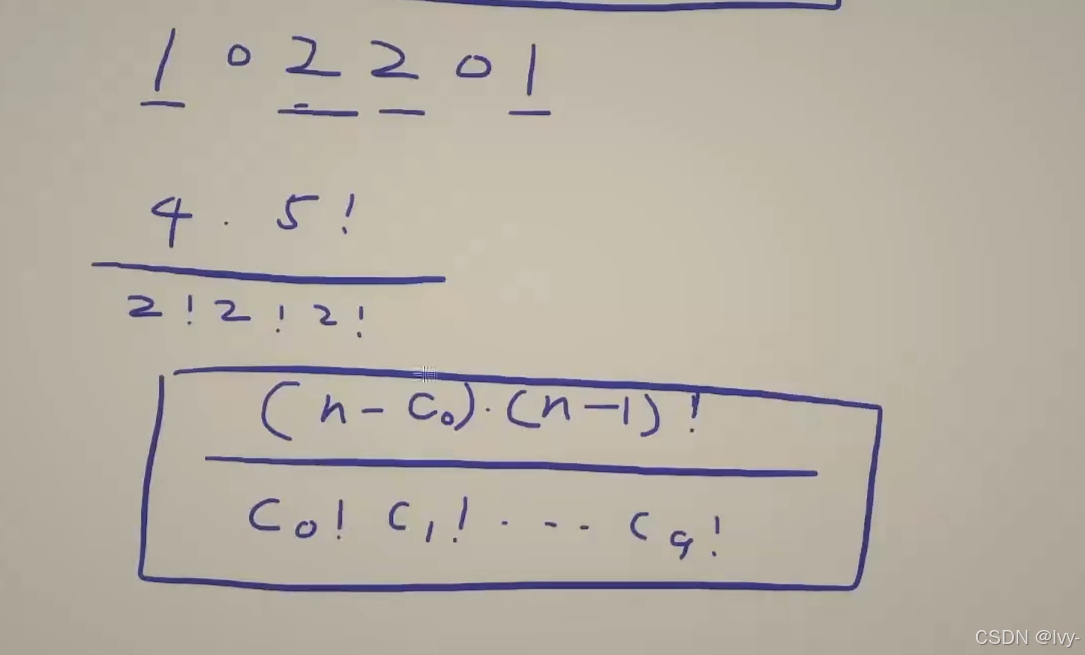 1 0 2 2 0 1
4 · 5!
2! 2! 2!
(n - c₀) · (n - 1)!
c₀! c₁! ···· c₉!
CSDN @Ivy-